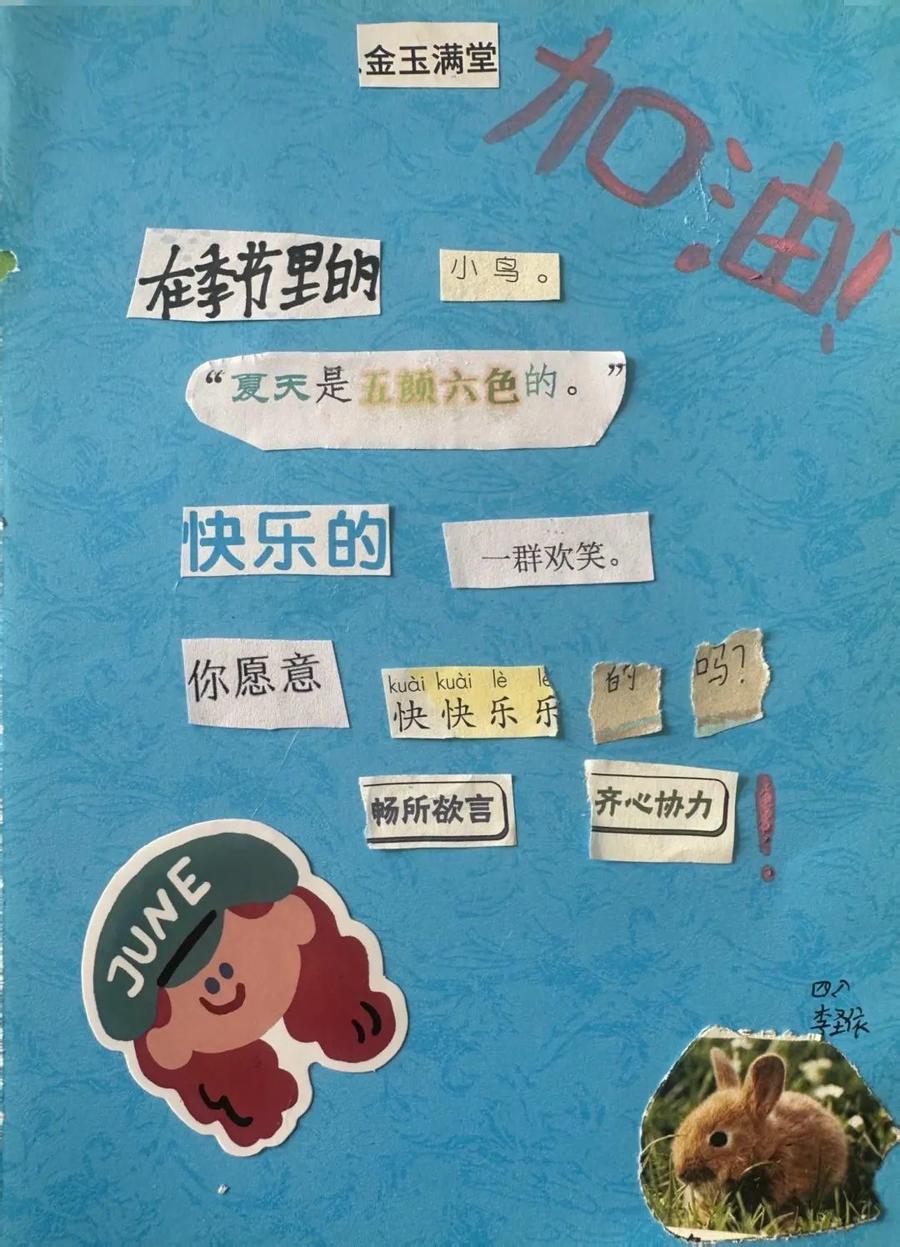 金玉满堂
加油！
在季节里的 小鸟。
“夏天是五颜六色的。”
快乐的 一群欢笑。
你愿意 kuài kuài lè lè
快快乐乐 的 吗？
畅所欲言 齐心协力！
JUNE
四八
李圣依